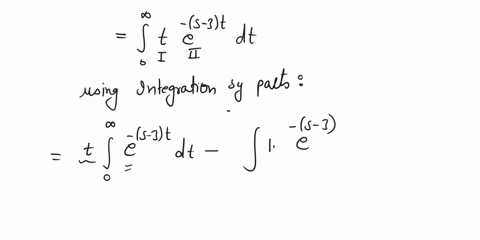 = ∫₀^∞ t e^{-(s-3)t} dt
I II
using Integration by parts :
= t ∫₀^∞ e^{-(s-3)t} dt - ∫ 1. e^{-(s-3)}